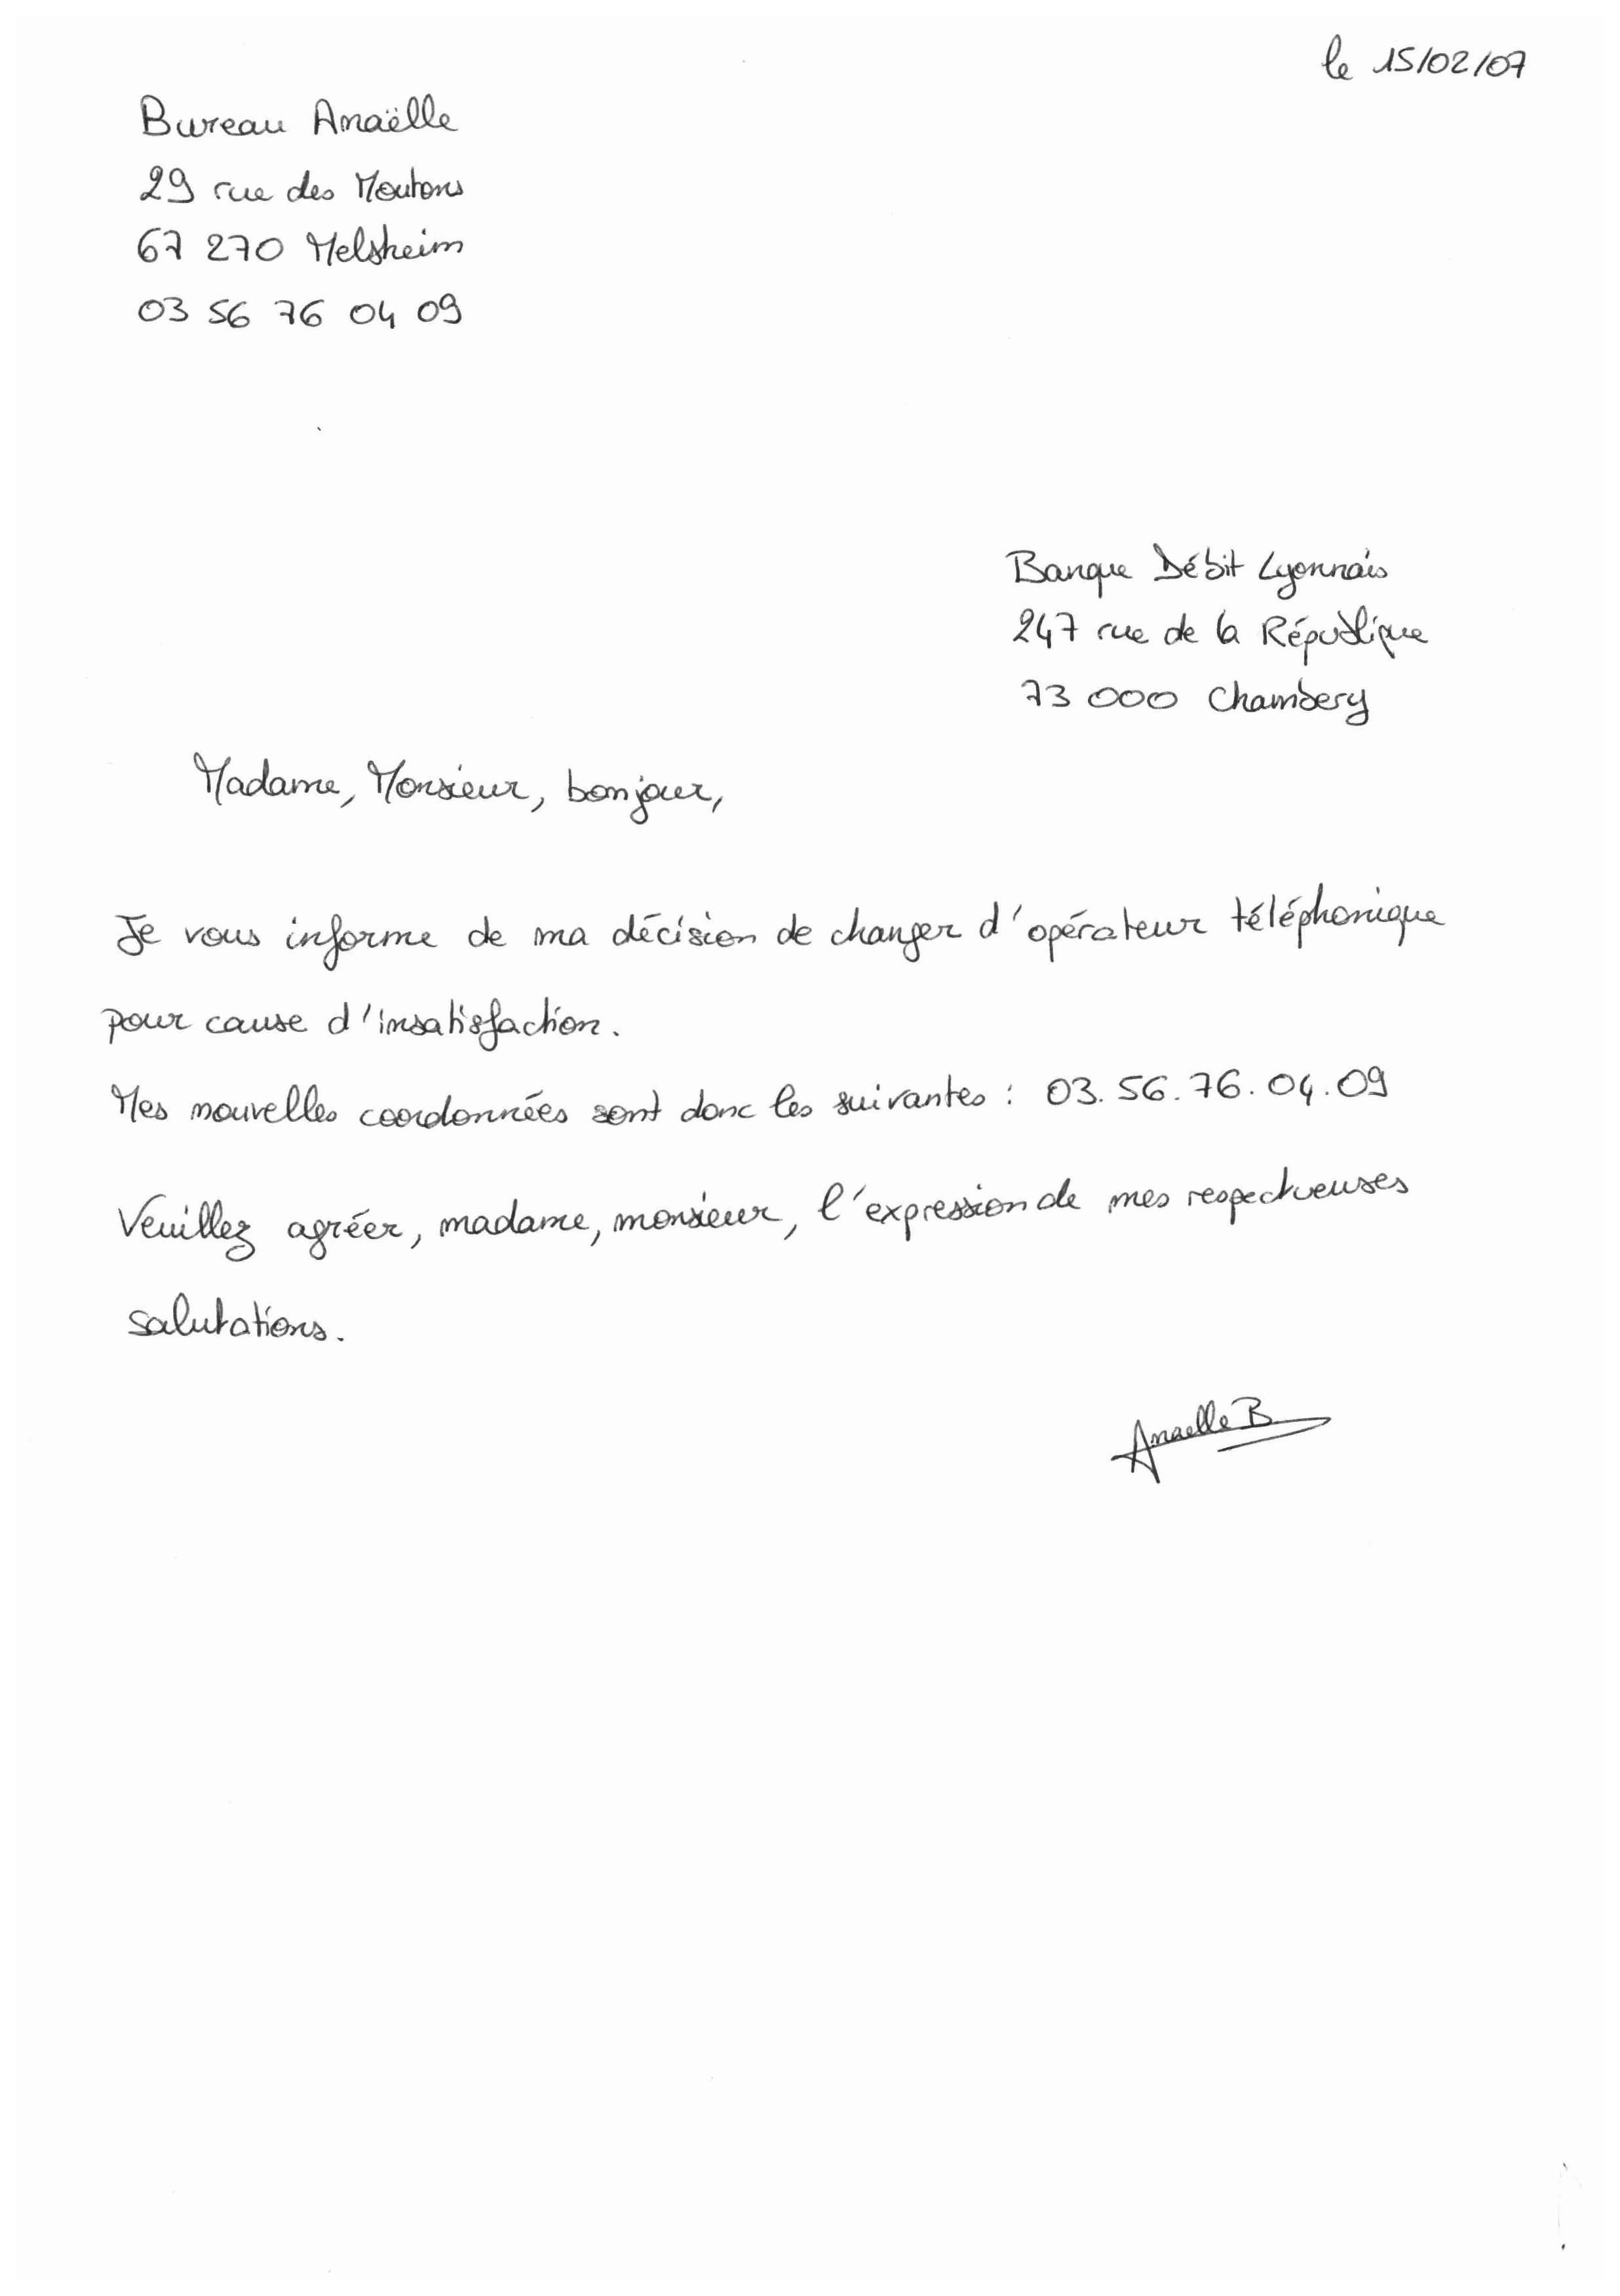 le 15/02/07
Bureau Anaëlle
29 rue des Moutons
67 270 Melsheim
03 56 76 04 09
Banque Débit Lyonnais
247 rue de la République
73 000 Chambery
Madame, Monsieur, bonjour,
Je vous informe de ma décision de changer d'opérateur téléphonique
pour cause d'insatisfaction.
Mes nouvelles coordonnées sont donc les suivantes : 03.56.76.04.09
Veuillez agréer, madame, monsieur, l'expression de mes respectueuses
salutations.
Anaelle B